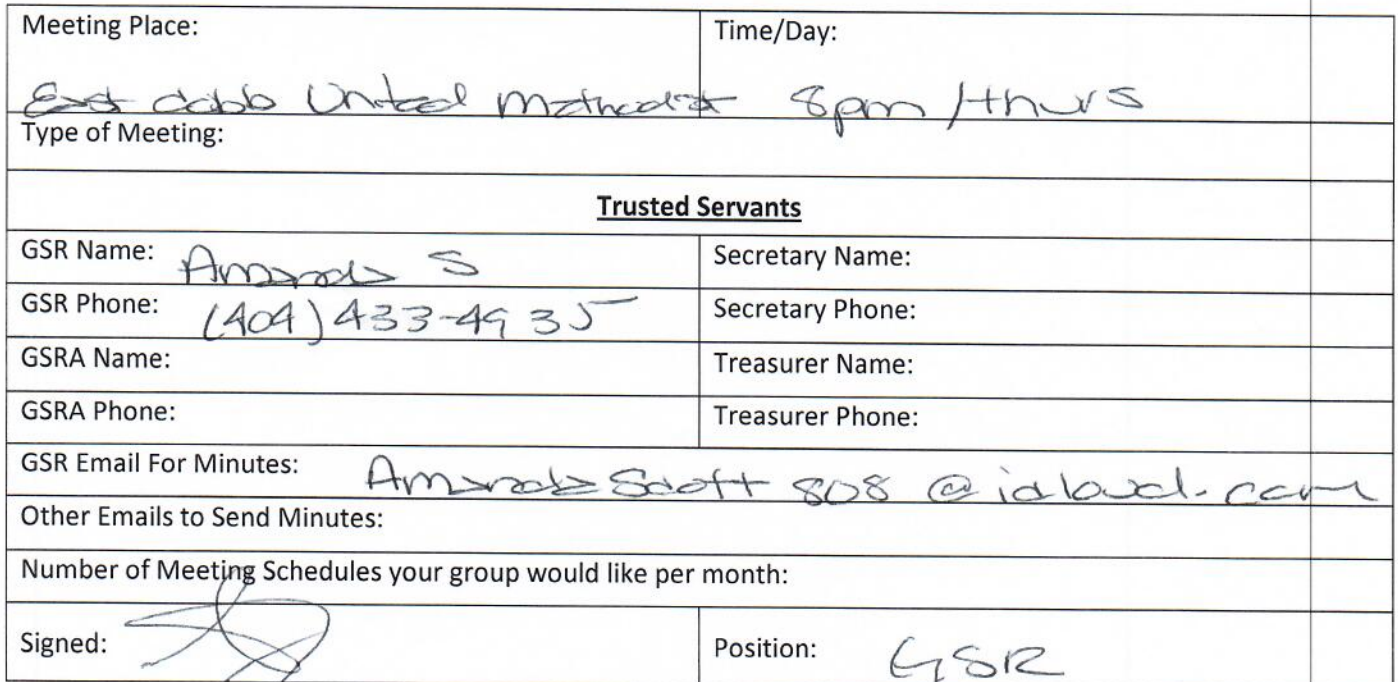 Meeting Place: Time/Day:
East Cobb United Methodist 8pm/thurs
Type of Meeting:
Trusted Servants
GSR Name: Amanda S Secretary Name:
GSR Phone: (404) 433-4935 Secretary Phone:
GSRA Name: Treasurer Name:
GSRA Phone: Treasurer Phone:
GSR Email For Minutes: AmandaScott808@icloud.com
Other Emails to Send Minutes:
Number of Meeting Schedules your group would like per month:
Signed: Position: GSR